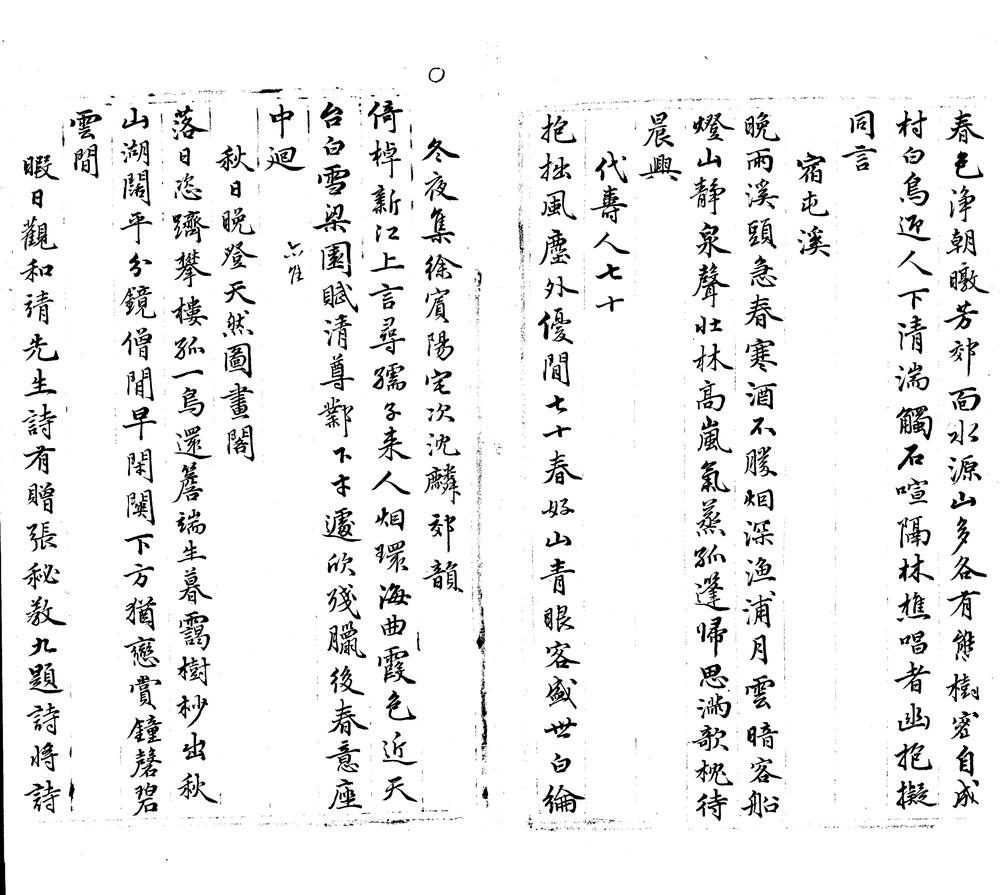 春色浄朝暾芳郊面水源山多各有態樹密自成
村白鳥迎人下清湍觸石喧隔林樵唱者幽抱擬
同言
宿屯溪
晩雨溪頭急春寒酒不勝烟深漁浦月雲暗客船
燈山静泉聲壮林髙嵐氣蒸孤蓬歸思満歌枕待
晨興
代壽人七十
抱拙風塵外優間七十春好山青眼客盛世白綸
冬夜集徐賓陽宅次沈麟郊韻
倚棹新江上言尋孺子来人烟環海曲霞色近天
台白雪梁園賦清尊鄴下才遽欣殘臘後春意座
中迴
秋日晩登天然圖畫閣
落日恣躋攀樓孤一鳥還簷端生暮靄樹杪出秋
山湖闊平分鏡僧閒早閉関下方猶戀賞鐘磬碧
雲間
暇日觀和靖先生詩有贈張秘教九題詩将詩